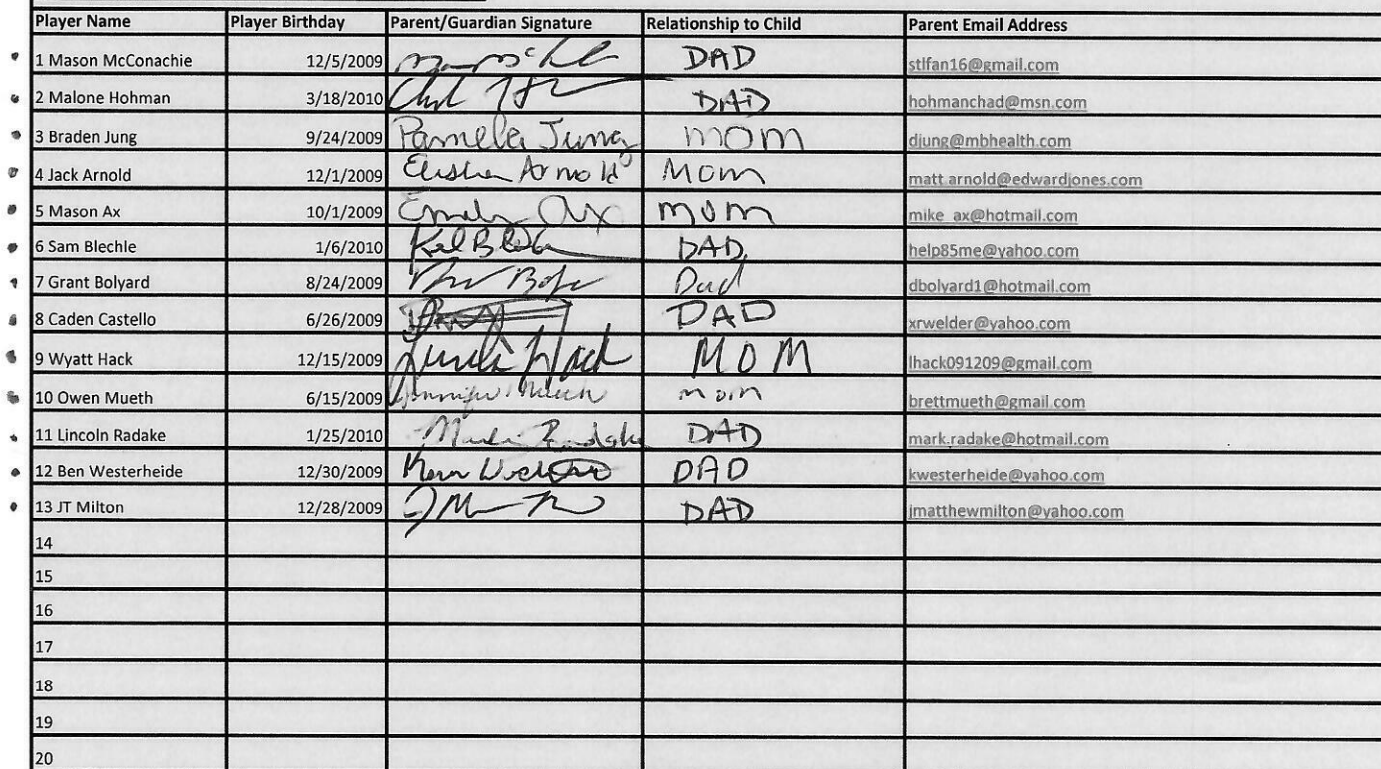 Player Name Player Birthday Parent/Guardian Signature Relationship to Child Parent Email Address
1 Mason McConachie 12/5/2009 DAD stlfan16@gmail.com
2 Malone Hohman 3/18/2010 DAD hohmanchad@msn.com
3 Braden Jung 9/24/2009 Pamela Jung mom djung@mbhealth.com
4 Jack Arnold 12/1/2009 Arnold Mom matt.arnold@edwardjones.com
5 Mason Ax 10/1/2009 Emily Ax mom mike_ax@hotmail.com
6 Sam Blechle 1/6/2010 DAD help85me@yahoo.com
7 Grant Bolyard 8/24/2009 Dad dbolyard1@hotmail.com
8 Caden Castello 6/26/2009 DAD xrwelder@yahoo.com
9 Wyatt Hack 12/15/2009 Hack MOM lhack091209@gmail.com
10 Owen Mueth 6/15/2009 Jennifer Mueth mom brettmueth@gmail.com
11 Lincoln Radake 1/25/2010 Mark Radake DAD mark.radake@hotmail.com
12 Ben Westerheide 12/30/2009 DAD kwesterheide@yahoo.com
13 JT Milton 12/28/2009 DAD jmatthewmilton@yahoo.com
14
15
16
17
18
19
20